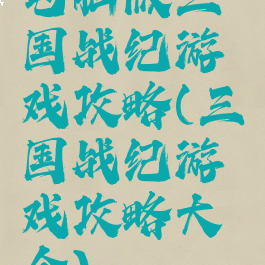 电脑版三
国战纪游
戏攻略(三
国战纪游
戏攻略大
全)